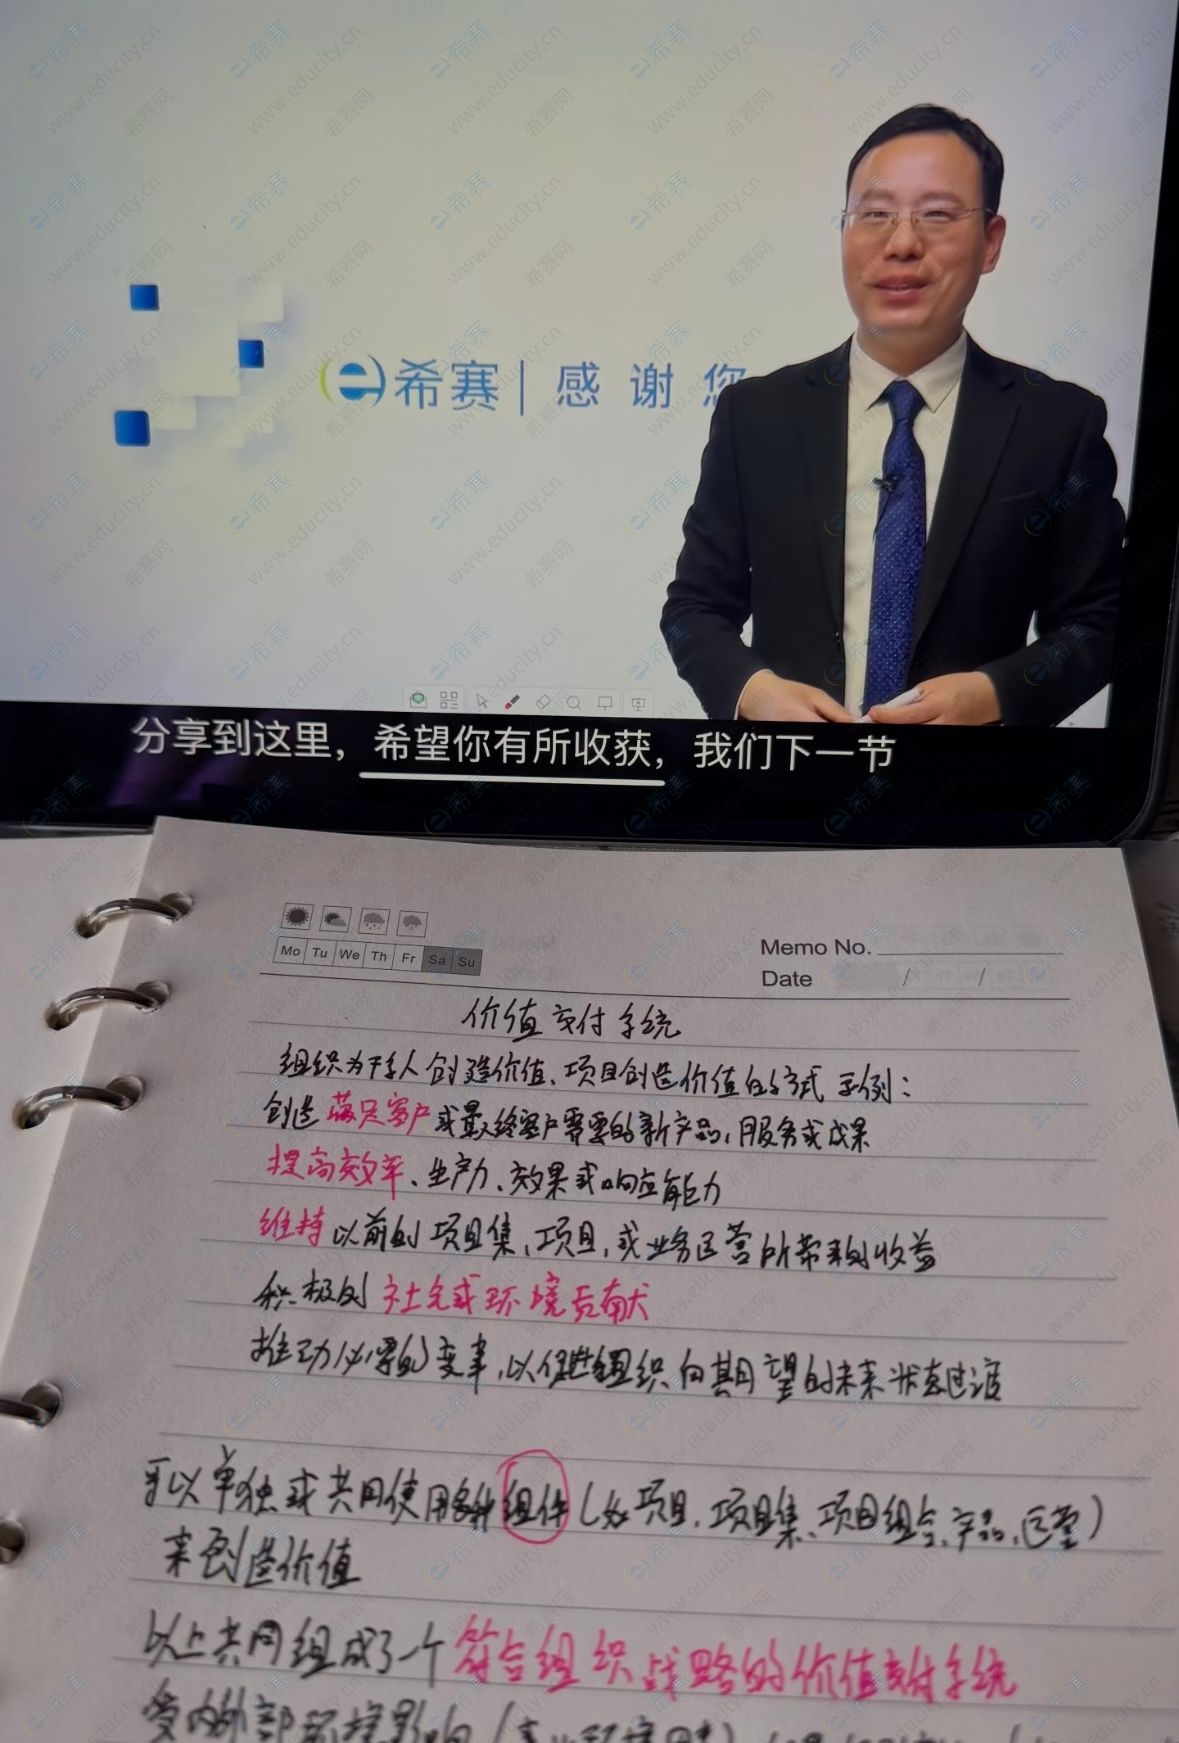 希赛 | 感谢您
分享到这里，希望你有所收获，我们下一节
Mo Tu We Th Fr Sa Su
Memo No.
Date / /
价值交付系统
组织为干系人创造价值、项目创造价值的方式示例：
创造满足客户或最终客户需要的新产品，服务或成果
提高效率、生产力、效果或响应能力
维持以前的项目集，项目，或业务运营所带来的收益
积极的社会或环境贡献
推动必需的变革，以促进组织向期望的未来状态过渡
可以单独或共同使用多种组件（如项目、项目集、项目组合、产品、运营）
来创造价值
以上共同组成了一个符合组织战略的价值交付系统
受内外部环境影响
希赛
www.educity.cn
希赛网